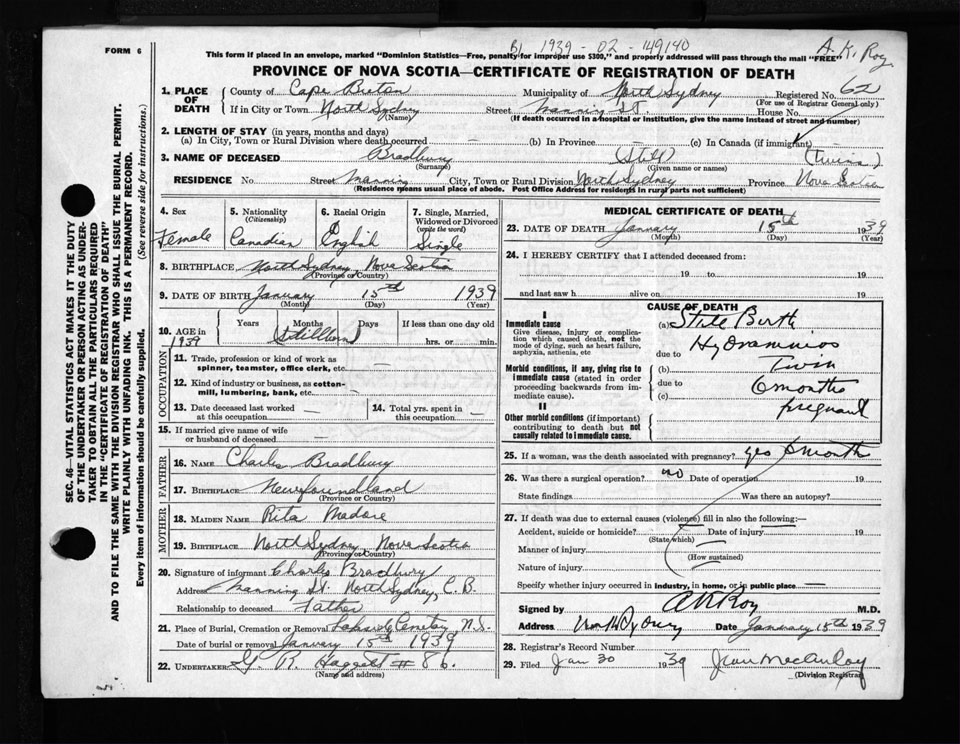 FORM 6
B1 1939 - 02 - 149140
A. K. Roy
This form if placed in an envelope, marked "Dominion Statistics—Free, penalty for improper use $300," and properly addressed will pass through the mail "FREE"
PROVINCE OF NOVA SCOTIA—CERTIFICATE OF REGISTRATION OF DEATH
1. PLACE OF DEATH
County of Cape Breton Municipality of North Sydney Registered No. 62
(For use of Registrar General only)
If in City or Town North Sydney Street Manning St. House No.
(Name) (If death occurred in a hospital or institution, give the name instead of street and number)
2. LENGTH OF STAY (in years, months and days)
(a) In City, Town or Rural Division where death occurred — (b) In Province — (c) In Canada (if immigrant)
3. NAME OF DECEASED Bradbury (Still) (Twins)
(Surname) (Given name or names)
RESIDENCE No. Street Manning City, Town or Rural Division North Sydney Province Nova Scotia
(Residence means usual place of abode. Post Office Address for residents in rural parts not sufficient)
4. Sex Female
5. Nationality (Citizenship) Canadian
6. Racial Origin English
7. Single, Married, Widowed or Divorced (write the word) Single
8. BIRTHPLACE North Sydney, Nova Scotia
(Province or Country)
9. DATE OF BIRTH January 15th 1939
(Month) (Day) (Year)
10. AGE in 1939 Years Months Days If less than one day
Stillborn hrs. or min.
OCCUPATION
11. Trade, profession or kind of work as spinner, teamster, office clerk, etc. —
12. Kind of industry or business, as cotton-mill, lumbering, bank, etc. —
13. Date deceased last worked at this occupation —
14. Total yrs. spent in this occupation —
15. If married give name of wife or husband of deceased —
FATHER
16. NAME Charles Bradbury
17. BIRTHPLACE Newfoundland
(Province or Country)
MOTHER
18. MAIDEN NAME Rita Madore
19. BIRTHPLACE North Sydney, Nova Scotia
(Province or Country)
20. Signature of informant Charles Bradbury
Address Manning St. North Sydney, C. B.
Relationship to deceased Father
21. Place of Burial, Cremation or Removal Lakeside Cemetery N.S.
Date of burial or removal January 15th 1939
22. UNDERTAKER # 86.
(Name and address)
MEDICAL CERTIFICATE OF DEATH
23. DATE OF DEATH January 15th 1939
(Month) (Day) (Year)
24. I HEREBY CERTIFY that I attended deceased from:
19 to 19
and last saw h alive on 19
CAUSE OF DEATH
I
Immediate cause
Give disease, injury or complication which caused death, not the mode of dying, such as heart failure, asphyxia, asthenia, etc
Morbid conditions, if any, giving rise to immediate cause (stated in order proceeding backwards from immediate cause).
II
Other morbid conditions (if important) contributing to death but not causally related to immediate cause.
(a) Still Birth
due to Hydramnios
(b) Twin
due to 6 months
(c) pregnant
25. If a woman, was the death associated with pregnancy? yes 6 month
26. Was there a surgical operation? no Date of operation 19
State findings Was there an autopsy?
27. If death was due to external causes (violence) fill in also the following:—
Accident, suicide or homicide? Date of injury 19
(State which)
Manner of injury
(How sustained)
Nature of injury
Specify whether injury occurred in industry, in home, or in public place
Signed by A K Roy M.D.
Address North Sydney Date January 15th 1939
28. Registrar's Record Number
29. Filed Jan 30 1939 Jean MacAulay
(Division Registrar)
SEC. 46—VITAL STATISTICS ACT MAKES IT THE DUTY OF THE UNDERTAKER OR PERSON ACTING AS UNDERTAKER TO OBTAIN ALL THE PARTICULARS REQUIRED IN THE "CERTIFICATE OF REGISTRATION OF DEATH" AND TO FILE THE SAME WITH THE DIVISION REGISTRAR WHO SHALL ISSUE THE BURIAL PERMIT.
WRITE PLAINLY WITH UNFADING INK. THIS IS A PERMANENT RECORD.
Every item of information should be carefully supplied. (See reverse side for instructions.)